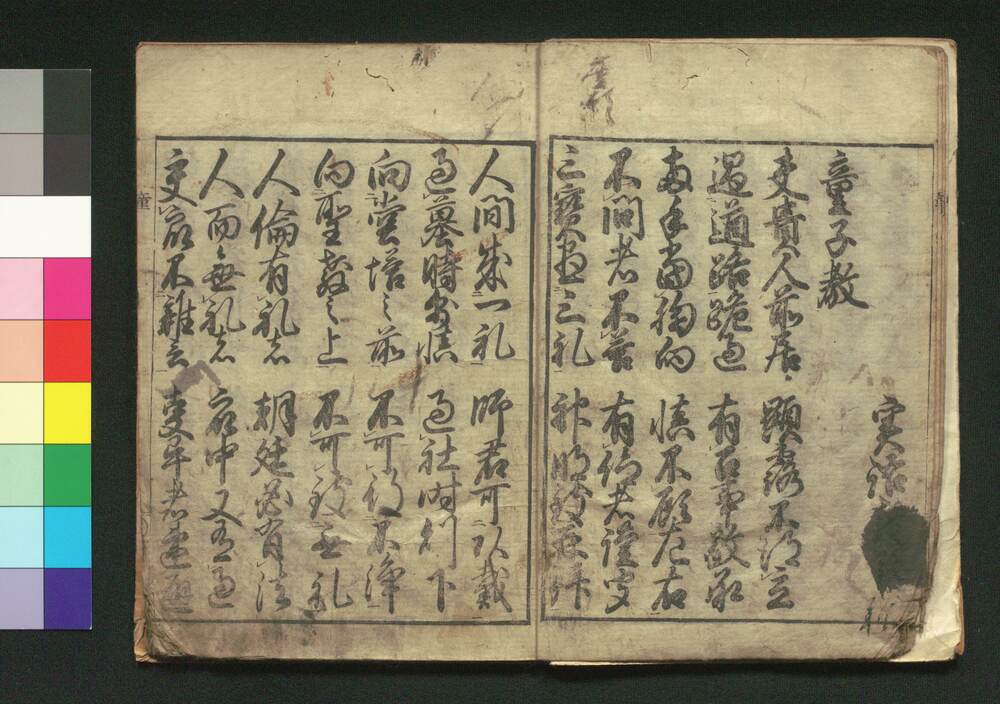 童子教
夫貴人前居 顕露不得立
遇道路跪過 有召事敬承
両手当胸向 慎不顧左右
不問者不答 有仰者謹聞
三宝尽三礼 神明致再拝
人間成一礼 師君可頂戴
過墓時則慎 過社時則下
向堂塔之前 不可行不浄
向聖教之上 不可致無礼
人倫有礼者 朝廷必有法
人而無礼者 衆中又有過
交衆不雑言 事畢者速避
童